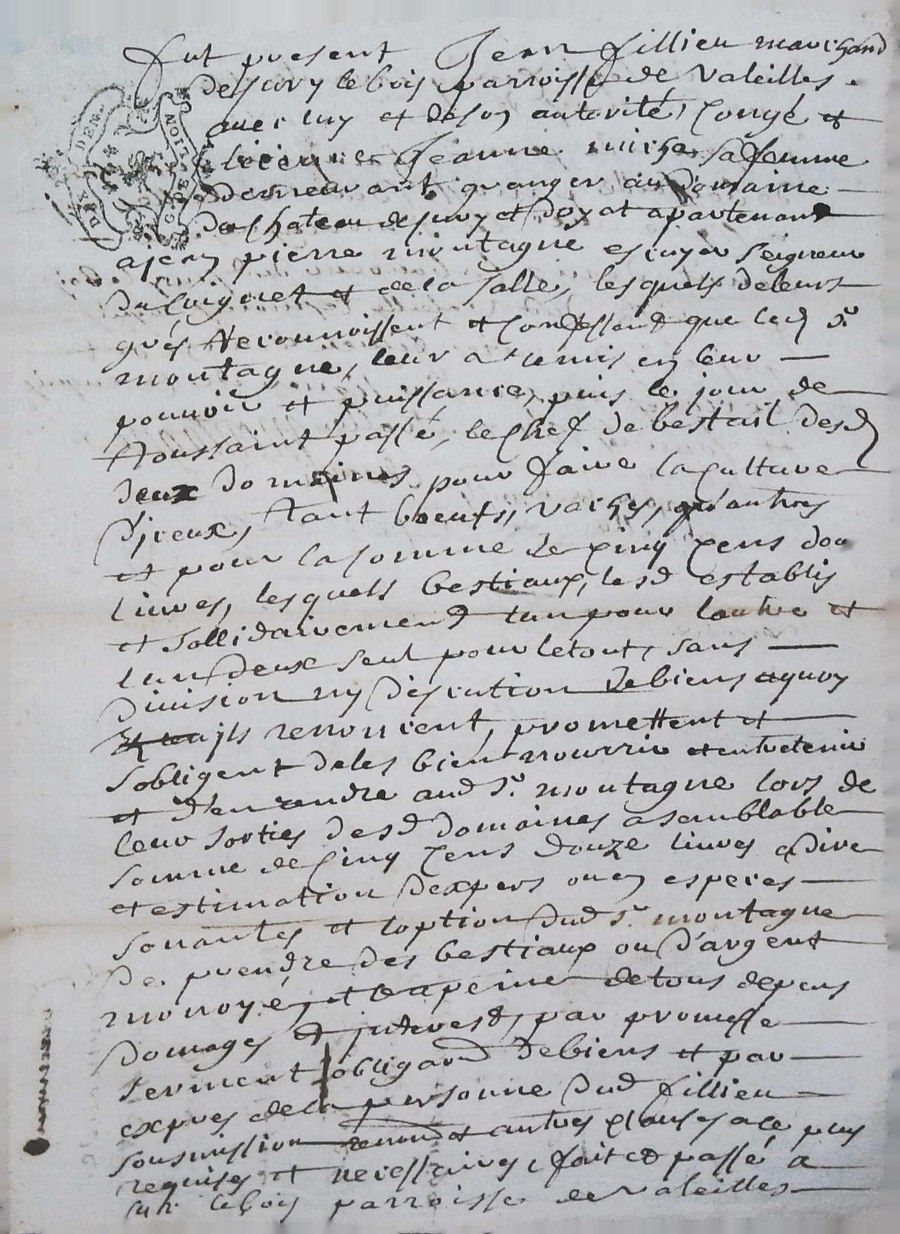 Fut present Jean fillieu marchand
de jury le bois parroisse de valeilles.
avec luy et de son autorité, Congé et
licence Jeanne micha sa femme
demeurant granger au Domaine
du Chateau de jury et apartenant
a jean pierre montagne escuyer seigneur
du et de la salle, lesquels de leurs
grés reconnoissent et confessent que led sr
montagne, leur a remis en leur
pouvoir et puissance, puis le jour de
toussaint passé, le Chef de bestail desd
deux domaines pour faire la culture
d'jceux, tant boeufs, vaches, qu'autres
et pour la somme de cinq cens douze
livres, lesquels bestiaux, lesd establis
et sollidairement l'un pour l'autre et
l'un deux seul pour le tout, sans
division ny discution de biens aquoy
jls renoncent, promettent et
s'obligent de les bien nourrir et entretenir
et d'en randre aud sr. montagne lors de
leur sorties desd domaines a semblable
somme de Cinq Cens douze livres a dire
et estimation d'expers ou en especes
sonantes et l'option dud sr. montagne
de prendre des bestiaux ou d'argent
monoyé, et a peine de tous depens
domages et jnterest, par promesse
serment obligaon de biens et par
expres de la personne dud fillieu
sousmission renon et autres clauses a ce plus
requises et necessaires, fait et passé a
le bois parroisse de valeilles